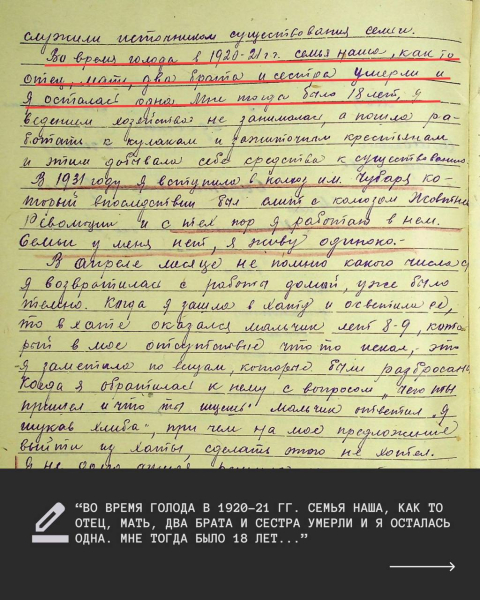 служили источником существования семьи.
Во время голода в 1920-21 гг. семья наша, как то
отец, мать, два брата и сестра умерли и
я осталась одна Мне тогда было 18 лет, я
ведением хозяйства не занималась, а пошла ра-
ботать к кулакам и зажиточным крестьянам
и этим добывала себе средства к существованию.
В 1931 году я вступила в колхоз им. Чубаря ко-
торый впоследствии был слит с колхозом Жовтнева
Революции и с тех пор я работаю в нем.
Семьи у меня нет, я живу одиноко.-
В апреле месяце не помню какого числа
я возвратилась с работы домой, уже было
темно. Когда я зашла в хату и осветила ее,
то в хате оказался мальчик лет 8-9, кото
рый в мое отсутствие что то искал,- это
я заметила по вещам, которые были разбросаны
Когда я обратилась к нему с вопросом „чего ты
пришел и что ты ищешь" мальчик ответил „я
шукав хлиба", при чем на мое предложение
выйти из хаты, сделать этого не хотел.
Я не долго думая
“ВО ВРЕМЯ ГОЛОДА В 1920–21 ГГ. СЕМЬЯ НАША, КАК ТО
ОТЕЦ, МАТЬ, ДВА БРАТА И СЕСТРА УМЕРЛИ И Я ОСТАЛАСЬ
ОДНА. МНЕ ТОГДА БЫЛО 18 ЛЕТ...”